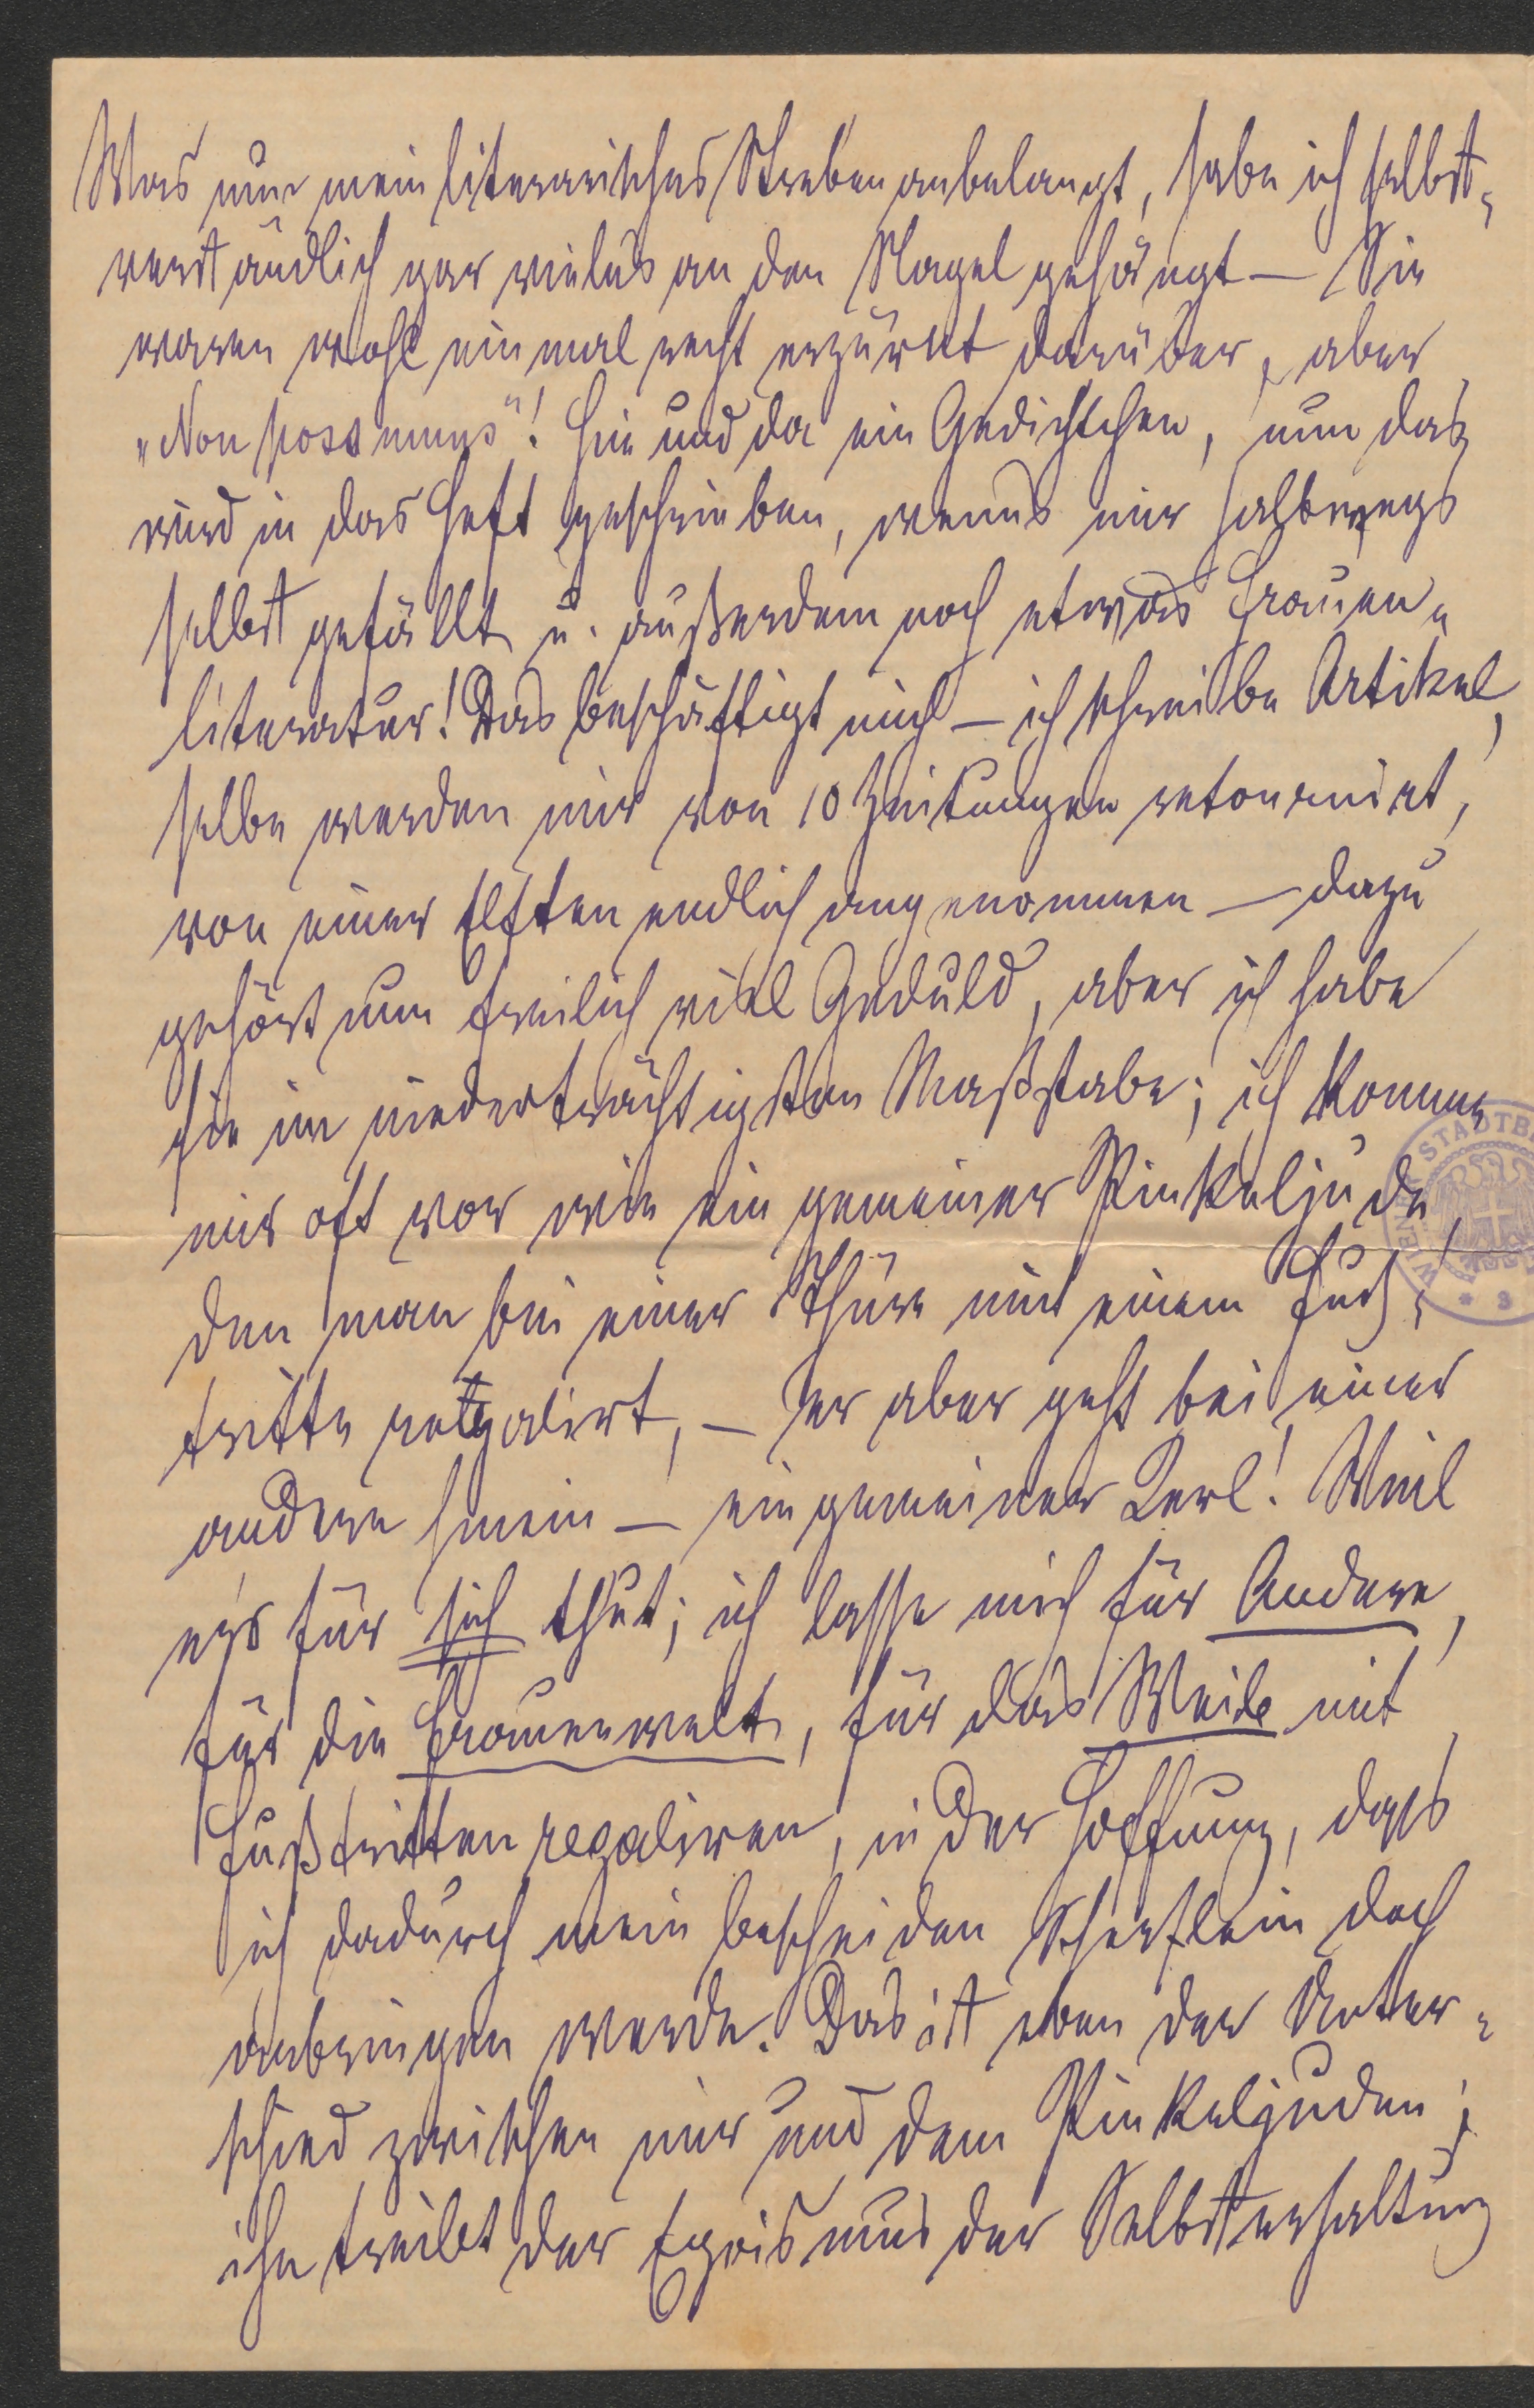 Was nun mein literarisches Streben anbelangt, habe ich selbst-
verständlich gar vieles an den Nagel gehängt – Sie
waren wohl einmal recht erzürnt darüber, aber
„Non possumus"! Hie und da ein Gedichtchen, nun das
wird in das Heft geschrieben, wenns mir halbwegs
selbst gefällt u. außerdem noch etwas Frauen-
literatur! Das beschäftigt mich – ich schreibe Artikel,
selbe werden mir von 10 Zeitungen retournirt,
von einer Elften endlich angenommen – dazu
gehört nun freilich viel Geduld, aber ich habe
sie im niederträchtigsten Maßstabe; ich komme
mir oft vor wie ein gemeiner Pinkeljude,
den man bei einer Thüre mit einem Fuß-
tritte regalirt, – er aber geht bei einer
andern hinein – ein gemeiner Kerl! Weil
ers für sich thut; ich lasse mich für Andere,
für die Frauenwelt, für das Weib mit
Fußtritten regaliren, in der Hoffnung, dass
ich dadurch mein bescheiden Scherflein doch
anbringen werde. Das ist eben der Unter-
schied zwischen mir und dem Pinkeljuden;
ihn treibt der Egoismus der Selbsterhaltung
WIENER STADTB
3